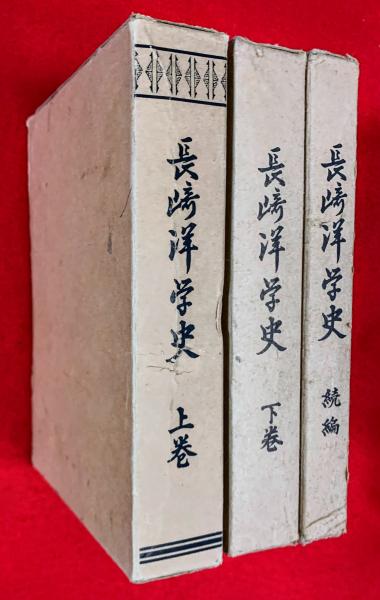 長崎洋学史
上巻
長崎洋学史
下巻
長崎洋学史
続編